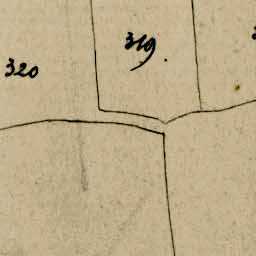 319.
320